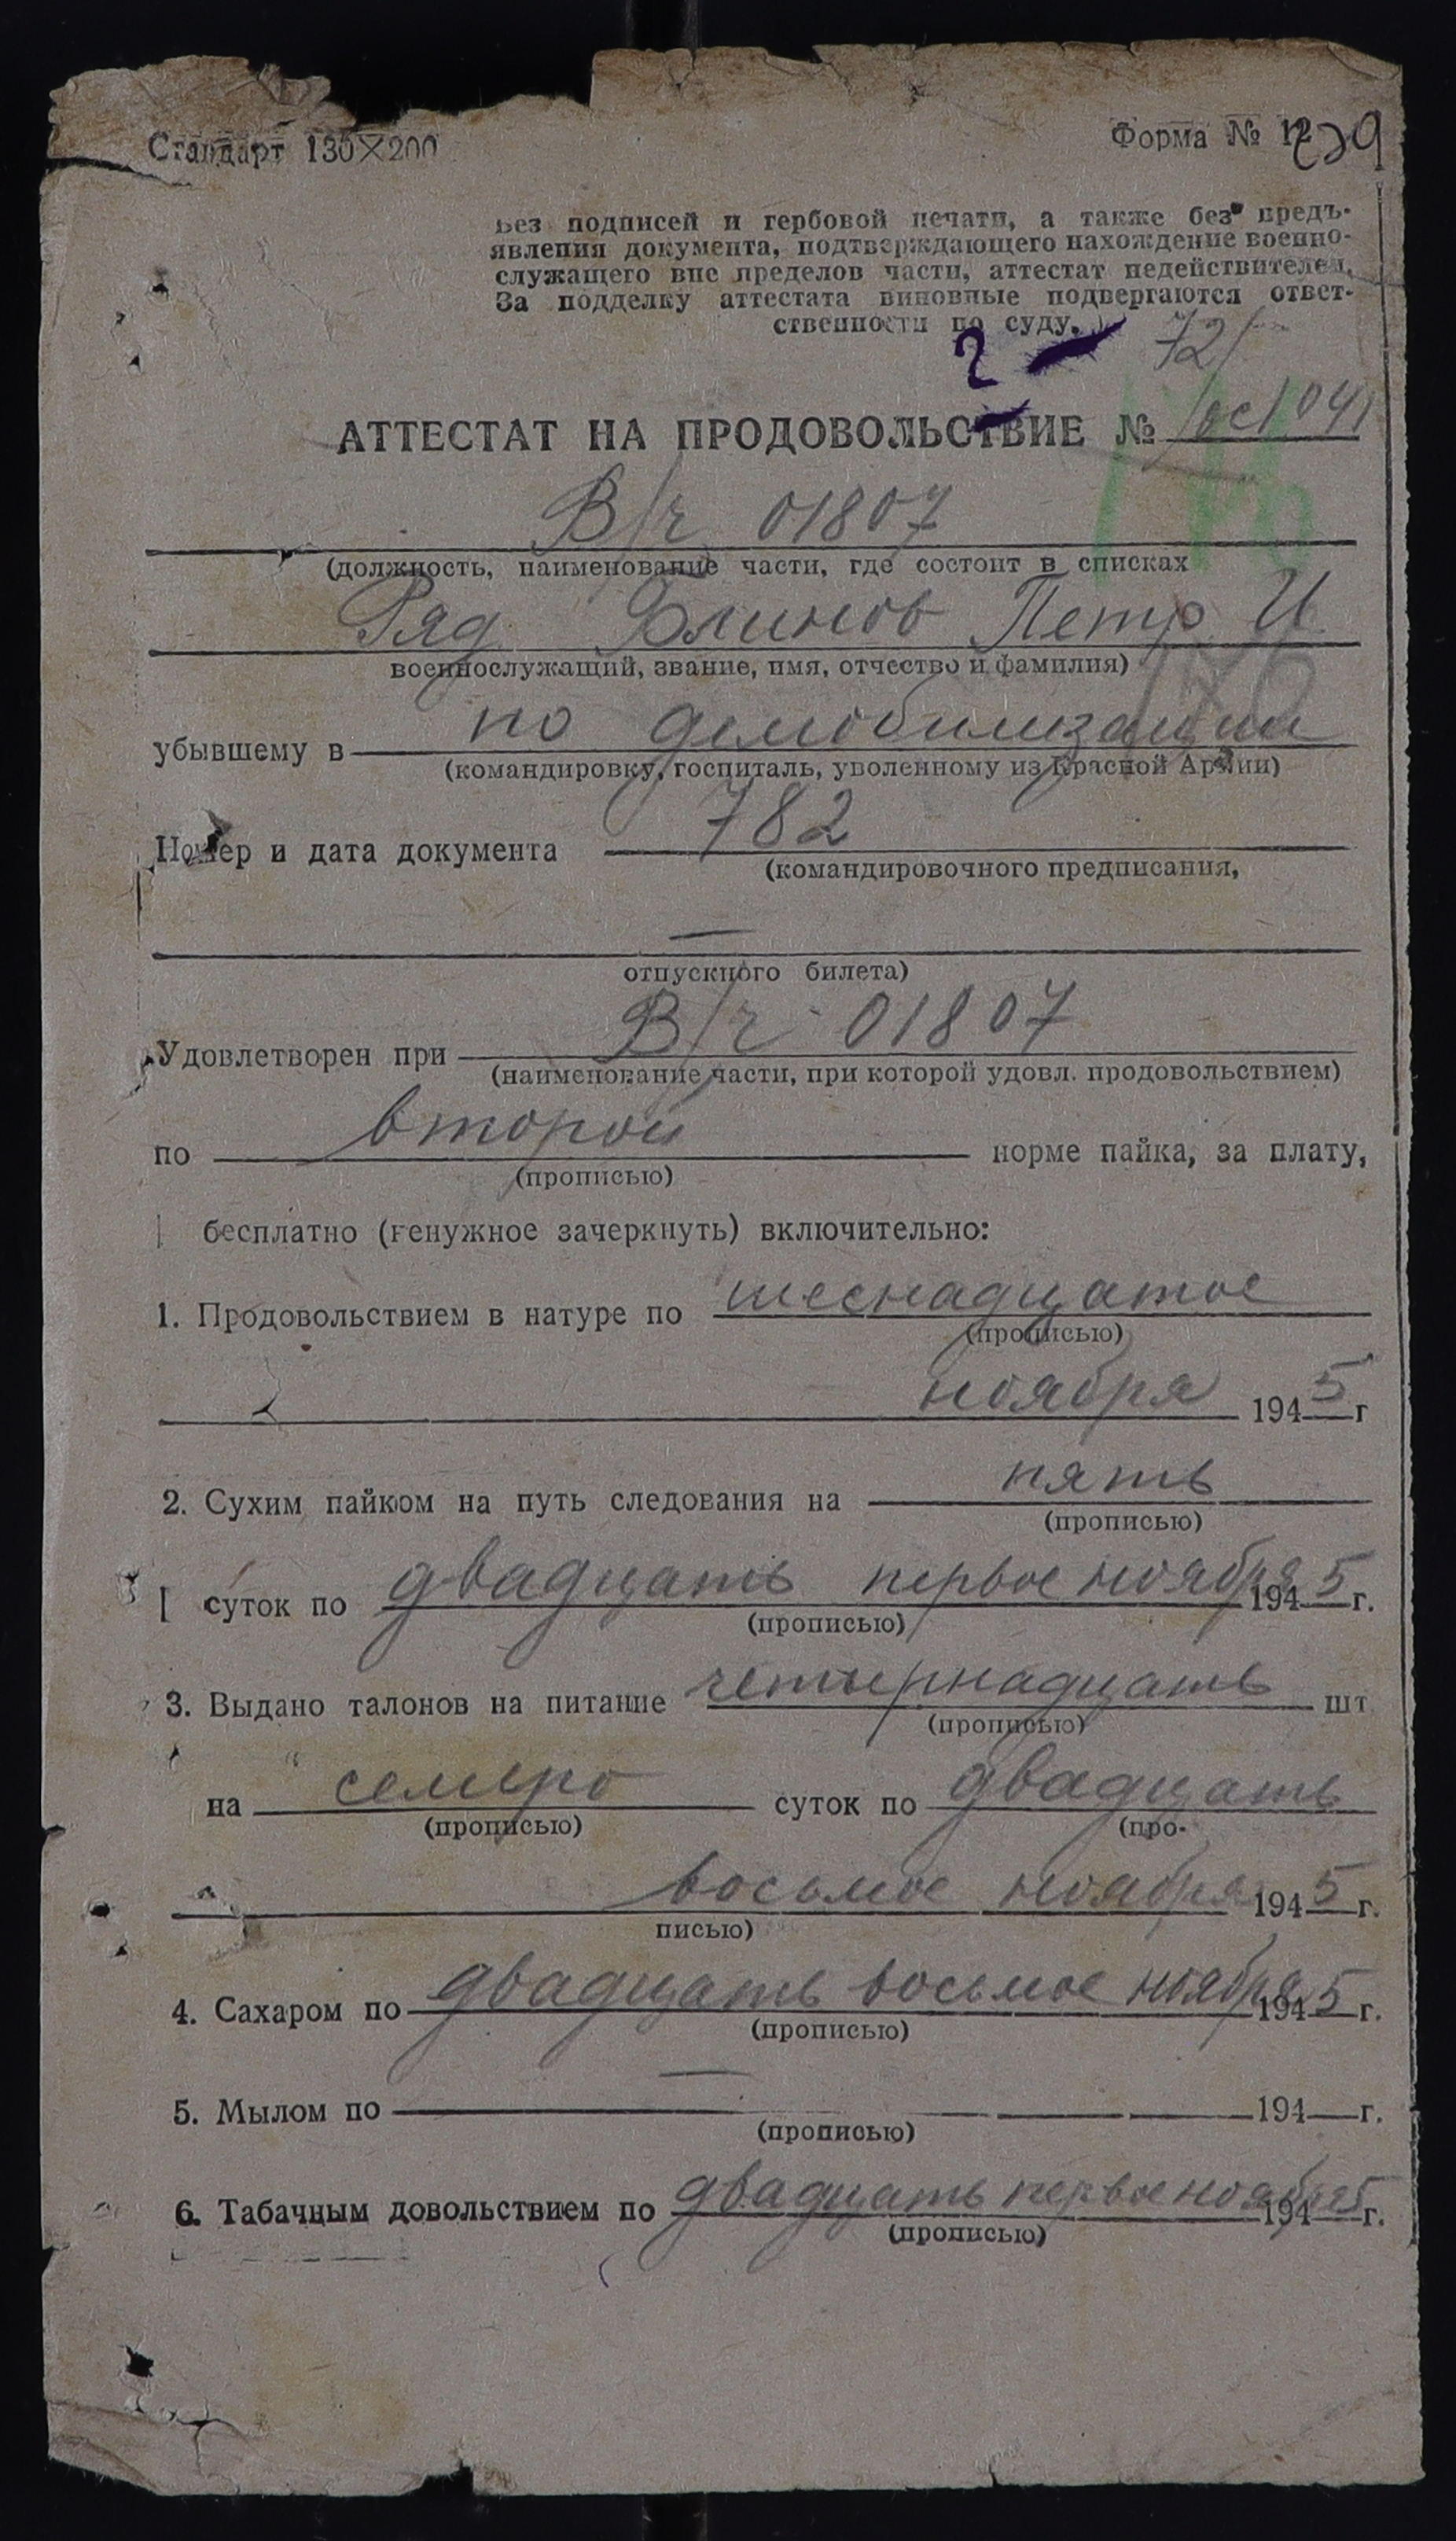 Стандарт 130×200
Форма № 12
Без подписей и гербовой печати, а также без предъ-
явления документа, подтверждающего нахождение военно-
служащего вне пределов части, аттестат недействителен.
За подделку аттестата виновные подвергаются ответ-
ственности по суду.
72/
АТТЕСТАТ НА ПРОДОВОЛЬСТВИЕ №
В/ч 01807
(должность, наименование части, где состоит в списках
Ряд. Блинов Петр И.
военнослужащий, звание, имя, отчество и фамилия)
убывшему в по демобилизации
(командировку, госпиталь, уволенному из Красной Армии)
Номер и дата документа 782
(командировочного предписания,
—
отпускного билета)
Удовлетворен при В/ч 01807
(наименование части, при которой удовл. продовольствием)
по второй норме пайка, за плату,
(прописью)
бесплатно (ненужное зачеркнуть) включительно:
1. Продовольствием в натуре по шеснадцатое
(прописью)
ноября 1945 г
2. Сухим пайком на путь следования на пять
(прописью)
суток по двадцать первое ноября 1945 г.
(прописью)
3. Выдано талонов на питание четырнадцать шт
(прописью)
на семеро суток по двадцать
(прописью) (про-
восьмое ноября 1945 г.
писью)
4. Сахаром по двадцать восьмое ноября 1945 г.
(прописью)
5. Мылом по — 194 г.
(прописью)
6. Табачным довольствием по двадцать первое ноября 1945 г.
(прописью)